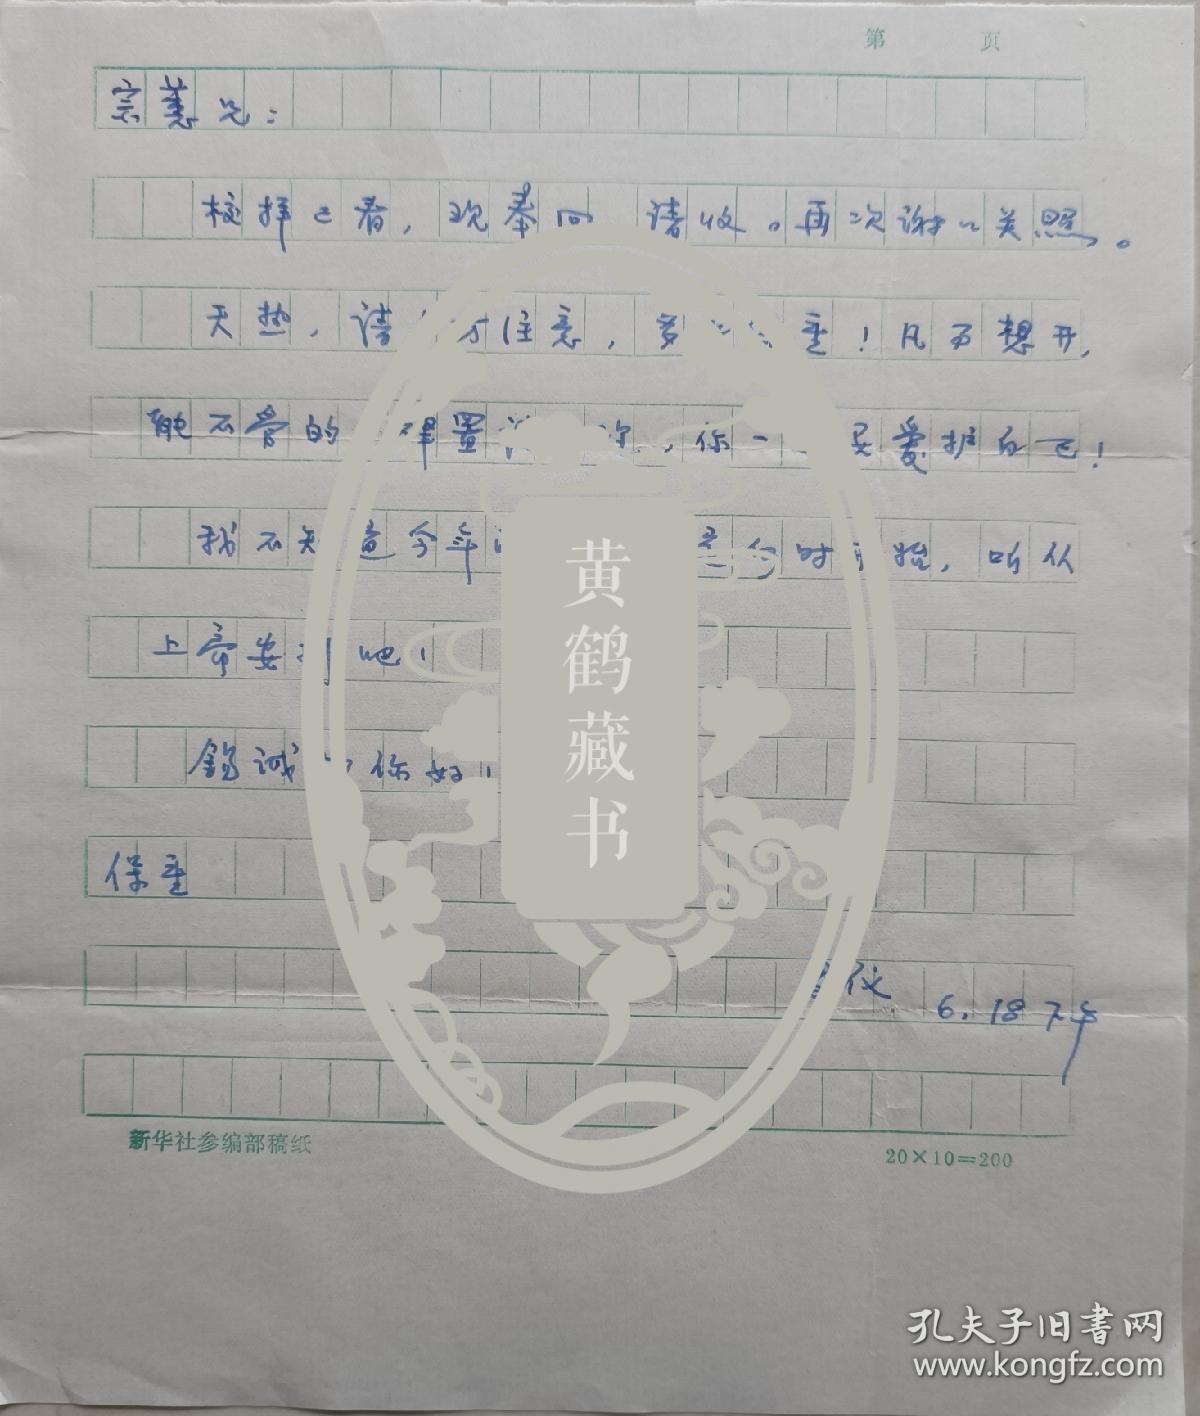 第 页
宗蕙兄：
校样已看，现奉回 请收。再次谢谢关照。
天热，请 方注意，多 重！凡百想开，
能不管的 律置 ，你一 要爱护自己！
我不知道今年 时 始，听从
上帝安 吧！
锦诚 你好！
保重
仪 6.18 下午
新华社参编部稿纸
20×10=200
黄鹤藏书
孔夫子旧書网
www.kongfz.com